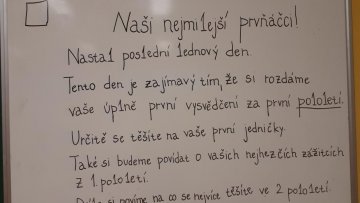 Naši nejmilejší prvňáčci!
Nastal poslední lednový den.
Tento den je zajímavý tím, že si rozdáme
vaše úplně první vysvědčení za první pololetí.
Určitě se těšíte na vaše první jedničky.
Také si budeme povídat o vašich nejhezčích zážitcích
z 1 pololetí.
si povíme na co se nejvíce těšíte ve 2 pololetí.